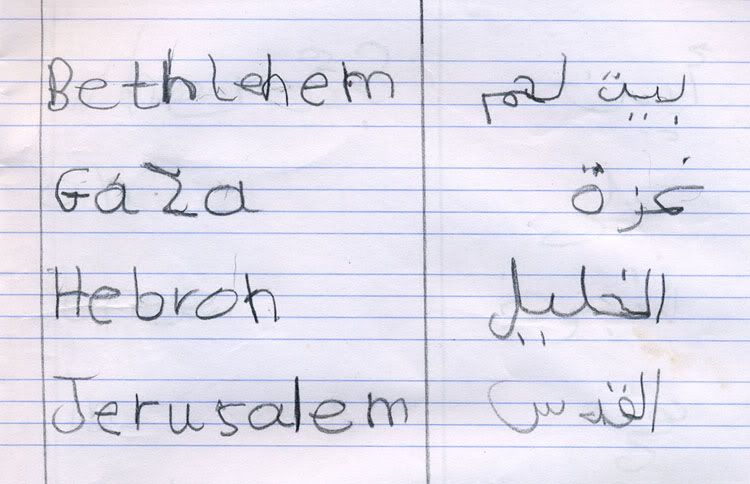 Bethlehem بيت لحم
Gaza غزة
Hebron الخليل
Jerusalem القدس